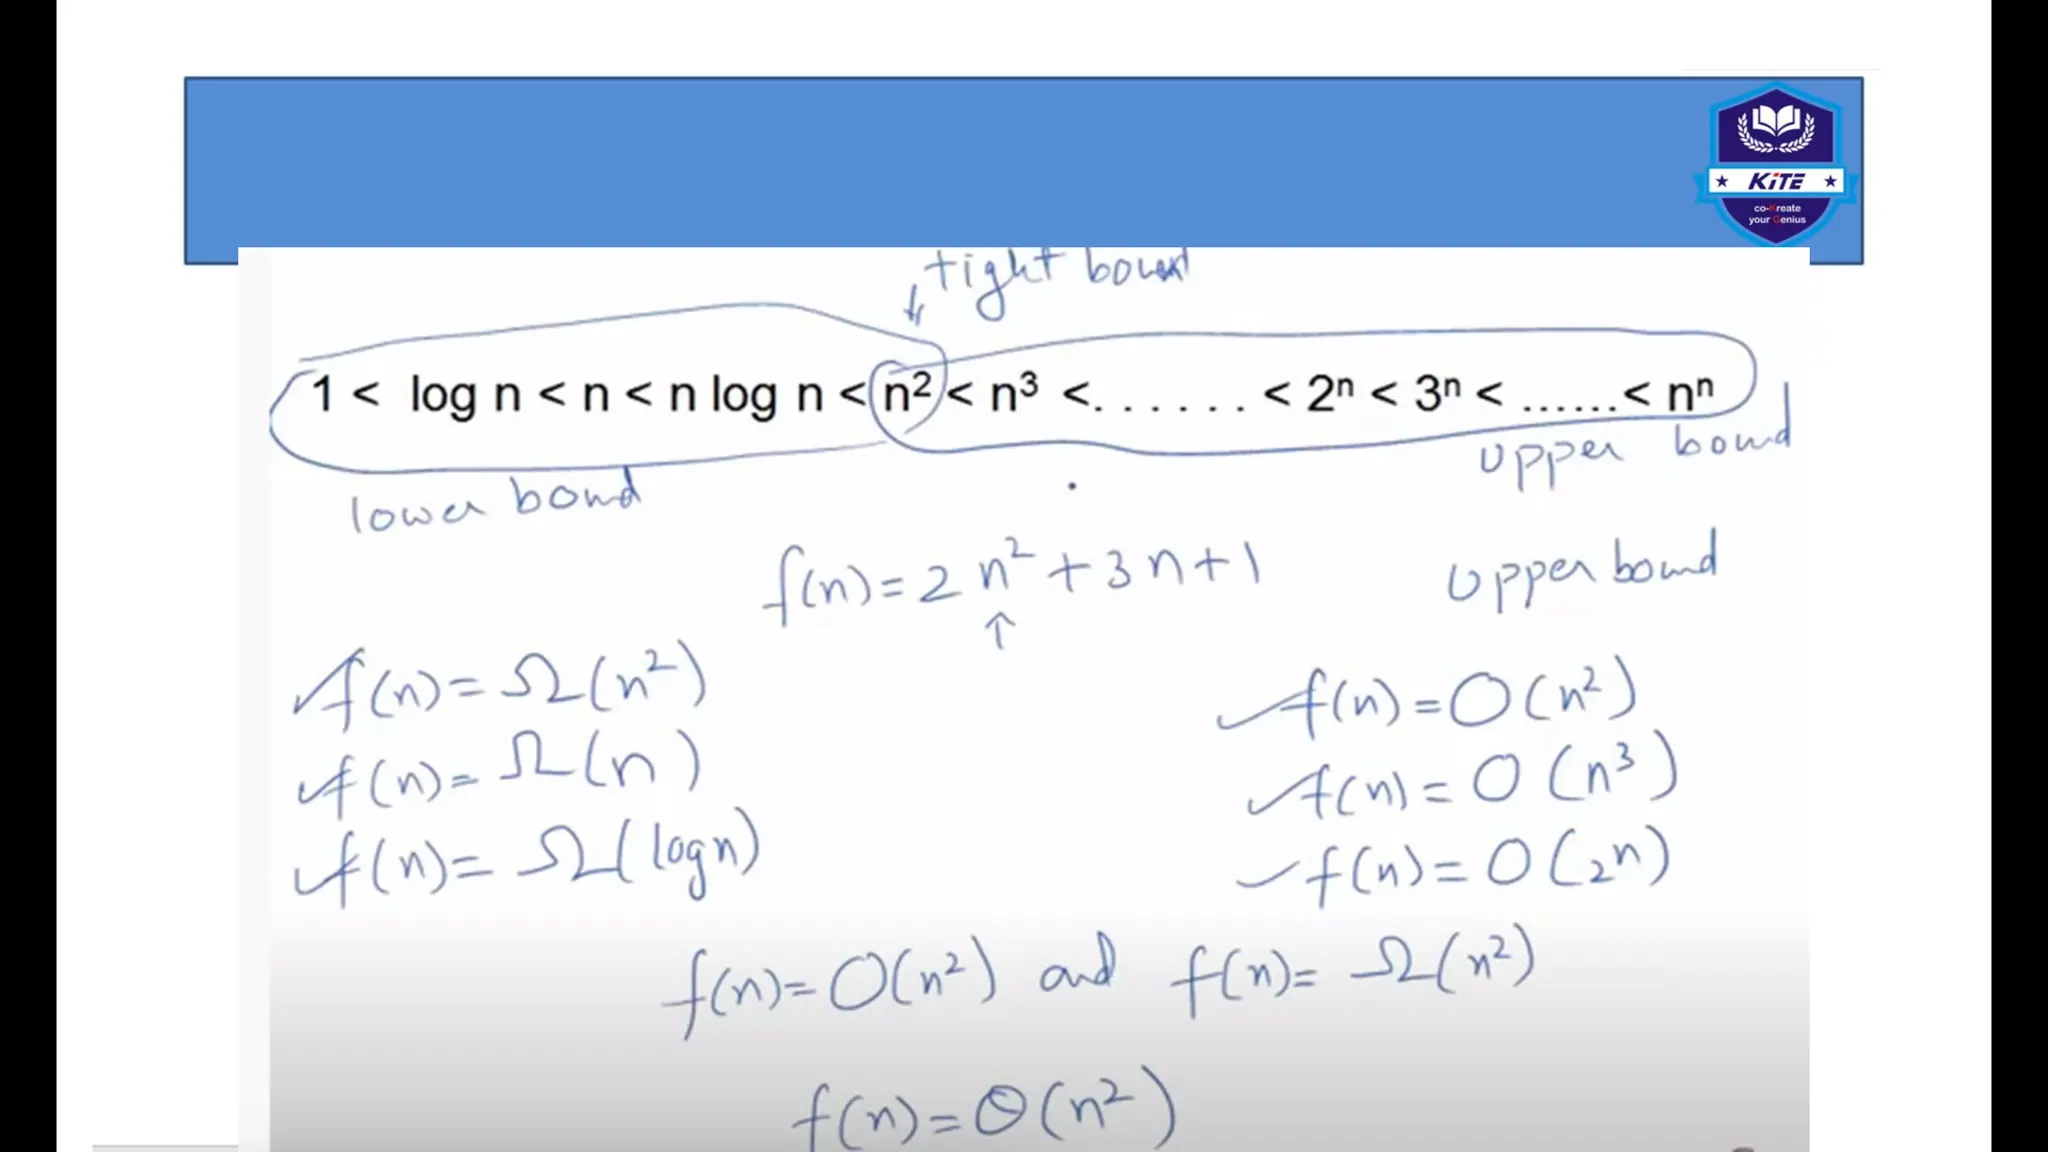 ★ KiTE ★
co-Kreate
your Genius
tight bound
1 < log n < n < n log n < n² < n³ <. . . . . . < 2ⁿ < 3ⁿ < ......< nⁿ
upper bound
lower bound
f(n) = 2n² + 3n + 1
↑
upper bound
f(n) = Ω(n²)
f(n) = O(n²)
f(n) = Ω(n)
f(n) = O(n³)
f(n) = Ω(log n)
f(n) = O(2ⁿ)
f(n) = O(n²) and f(n) = Ω(n²)
f(n) = Θ(n²)